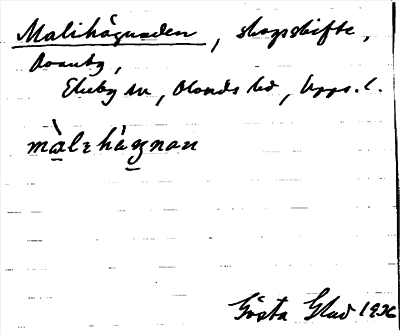 Malihägnaden, skogsskifte,
Ekeby sn, Olands hd, Upps. l.
màlɩhàgnan
Gösta Glad 1936